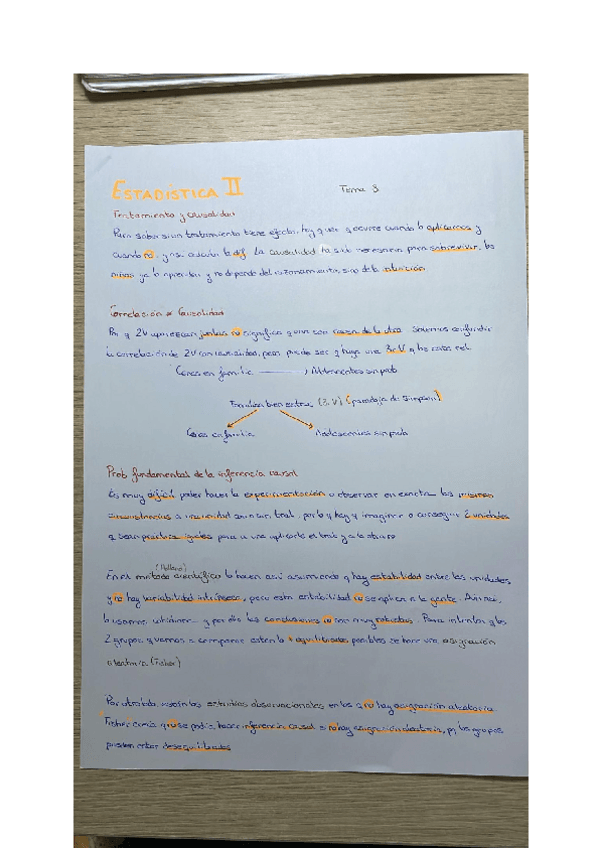 ESTADÍSTICA II Tema 3
Tratamiento y causalidad
Para saber si un tratamiento tiene efecto, hay que q ocurre cuando lo aplicamos y
cuando no, y así calcular la dif. La causalidad ha sido necesaria para sobrevivir, los
niños ya lo aprenden y no depende del razonamiento, sino de la intuición
Correlación ≠ Causalidad
Pq 2V aparezcan juntas no significa q una sea causa de la otra. Solemos confundir
la correlación de 2V con causalidad, pero puede ser q haya una 3ªV q los
Cenas en familia → Adolescentes sin prob
Familia bien estruc. (3.V) (paradoja de Simpson)
Cenas en familia Adolescentes sin prob
Prob fundamental de la inferencia causal
Es muy difícil poder hacer la experimentación u observar en exacta las mismas
circunstancias a una unidad con y sin trat, por lo q hay q imaginar o conseguir 2 unidades
q sean practica. iguales para a una aplicarle el trat y a la otra no
(Holland)
En el método científico lo hacen así asumiendo q hay estabilidad entre las unidades,
y no hay variabilidad intrínseca, pero esta estabilidad no se aplica a la gente. Aún así,
lo usamos y por ello las conclusiones no son muy robustas. Para intentar q los
2 grupos q vamos a comparar estén lo + equilibrados posibles se hace una asignación
aleatoria (Fisher)
Por otro lado, usan los estudios observacionales en los q no hay asignación aleatoria.
Fisher creía q no se podía hacer inferencia causal si no hay asignación aleatoria, pq los grupos
pueden estar desequilibrados